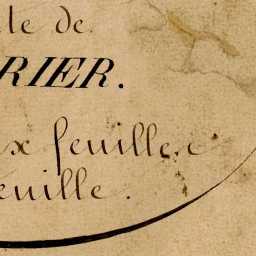 te de
RIER.
x feuille.
euille.